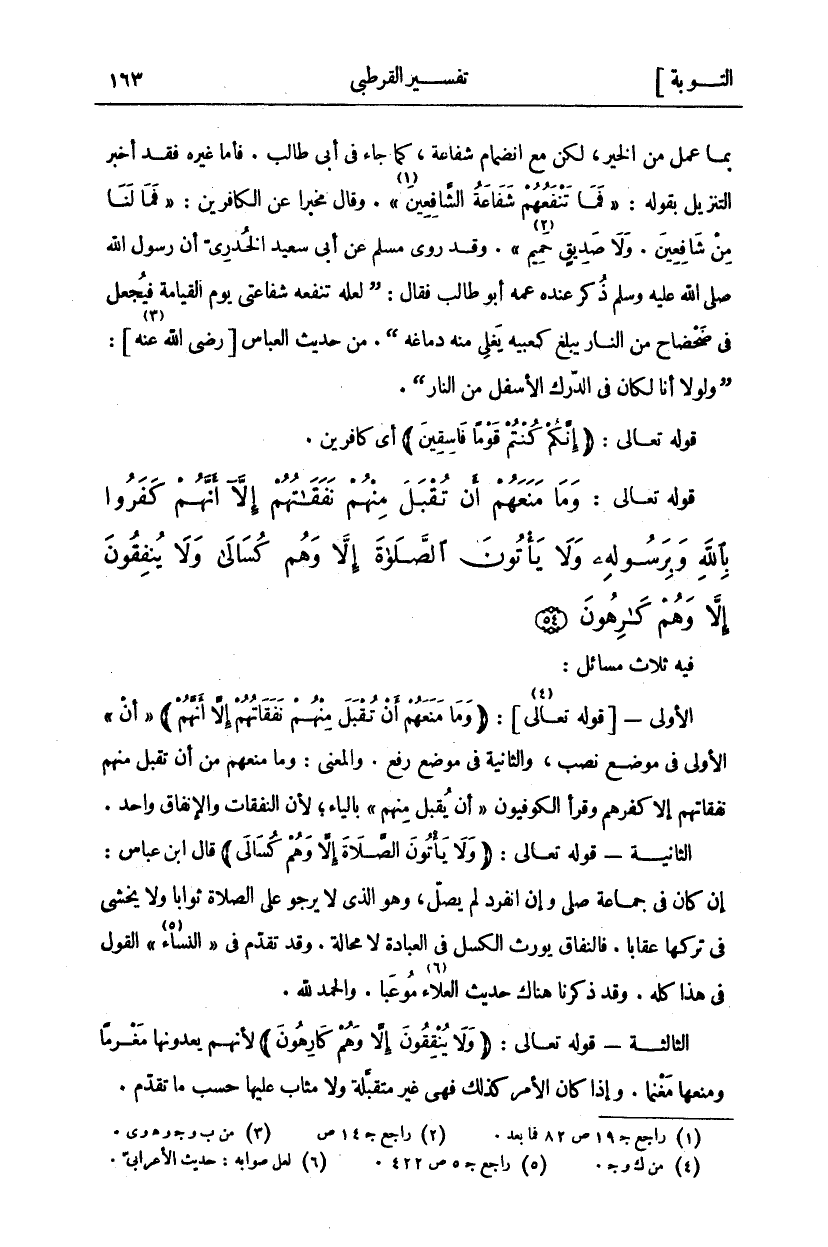 التـــوبة ]
تفســـير القرطبى
١٦٣
بمـا عمل من الخير، لكن مع انضمام شفاعة ، كما جاء فى أبى طالب . فأما غيره فقـد أخبر
التنزيل بقوله : « فَمَا تَنْفَعُهُمْ شَفَاعَةُ الشَّافِعِينَ (١) » . وقال مخبرا عن الكافرين : « فَمَا لَنَا
مِنْ شَافِعِينَ . وَلَا صَدِيقٍ حَمِيمٍ (٢) » . وقـد روى مسلم عن أبى سعيد الخُدرىّ أن رسول الله
صلى الله عليه وسلم ذُكر عنده عمه أبو طالب فقال : ” لعله تنفعه شفاعتى يوم القيامة فيُجعل
فى ضَحْضاح من النـار يبلغ كعبيه يَغلِى منه دماغه “ . من حديث العباس [ رضى الله عنه (٣) ] :
” ولولا أنا لكان فى الدّرك الأسفل من النار “ .
قوله تعـالى : ﴿ إِنَّكُمْ كُنْتُمْ قَوْمًا فَاسِقِينَ ﴾ أى كافرين .
قوله تعـالى : وَمَا مَنَعَهُمْ أَن تُقْبَلَ مِنْهُمْ نَفَقَـٰتُهُمْ إِلَّآ أَنَّهُمْ كَفَرُوا
بِٱللَّهِ وَبِرَسُـولِهِۦ وَلَا يَأْتُونَ ٱلصَّلَوٰةَ إِلَّا وَهُمْ كُسَالَىٰ وَلَا يُنفِقُونَ
إِلَّا وَهُمْ كَـٰرِهُونَ ٥٤
فيه ثلاث مسائل :
الأولى — [ قوله تعـالى (٤) ] : ﴿ وَمَا مَنَعَهُمْ أَنْ تُقْبَلَ مِنْهُـمْ نَفَقَاتُهُمْ إِلَّا أَنَّهُمْ ﴾ « أنْ »
الأولى فى موضـع نصب ، والثانية فى موضع رفع . والمعنى : وما منعهم من أن تقبل منهم
نفقاتهم إلا كفرهم وقرأ الكوفيون « أن يُقبل منهم » بالياء ؛ لأن النفقات والإنفاق واحد .
الثانيـــة — قوله تعـالى : ﴿ وَلَا يَأْتُونَ الصَّـلَاةَ إِلَّا وَهُمْ كُسَالَى ﴾ قال ابن عباس :
إن كان فى جمـاعة صلى وإن انفرد لم يصلّ، وهو الذى لا يرجو على الصلاة ثوابا ولا يخشى
فى تركها عقابا . فالنفاق يورث الكسل فى العبادة لا محالة . وقد تقدّم فى « النساء (٥) » القول
فى هذا كله . وقد ذكرنا هناك حديث العلاء (٦) مُوعَبا . والحمد لله .
الثالثـــة — قوله تعـالى : ﴿ وَلَا يُنْفِقُونَ إِلَّا وَهُمْ كَارِهُونَ ﴾ لأنهـم يعدونها مَغْـرمًا
ومنعها مَغْنما . وإذا كان الأمر كذلك فهى غير متقبَّلة ولا مثاب عليها حسب ما تقدّم .
(١) راجع جـ ١٩ ص ٨٢ فما بعد . (٢) راجع جـ ١٤ ص (٣) من ب وجـ وهـ وى .
(٤) من ك وجـ . (٥) راجع جـ ٥ ص ٤٢٢ . (٦) لعل صوابه : حديث الأعرابىّ .